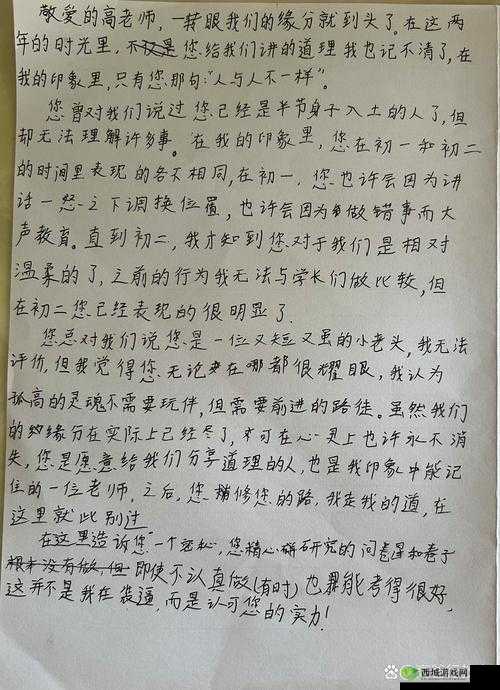 敬爱的高老师，一转眼我们的缘分就到头了。在这两
年的时光里，不仅是您给我们讲的道理我也记不清了，在
我的印象里，只有您那句："人与人不一样"。
您曾对我们说过您已经是半节身子入土的人了，但
却无法理解许多事。在我的印象里，您在初一和初二
的时间里表现的各不相同，在初一，您也许会因为讲
话一怒之下调换位置，也许会因为做错事而大
声教育。直到初二，我才知到您对于我们是相对
温柔的了，之前的行为我无法与学长们做比较，但
在初二您已经表现的很明显了.
您总对我们说您是一位又短又虽的小老头，我无法
评价，但我觉得您无论在哪都很耀眼，我认为
孤高的灵魂不需要玩伴，但需要前进的路徒。虽然我们
的缘分在实际上已经尽了，可在心灵上也许永不消
失，您是愿意给我们分享道理的人，也是我印象中能记
住的一位老师。之后，您 修您的路，我走我的道，在
这里就此别过
在这里造诉您一个密秘，您精心研究的问卷和卷子
根本没有做，但即使不认真做(有时)也能考得很好，
这并不是我在装逼，而是认可您的实力！
西城游戏网